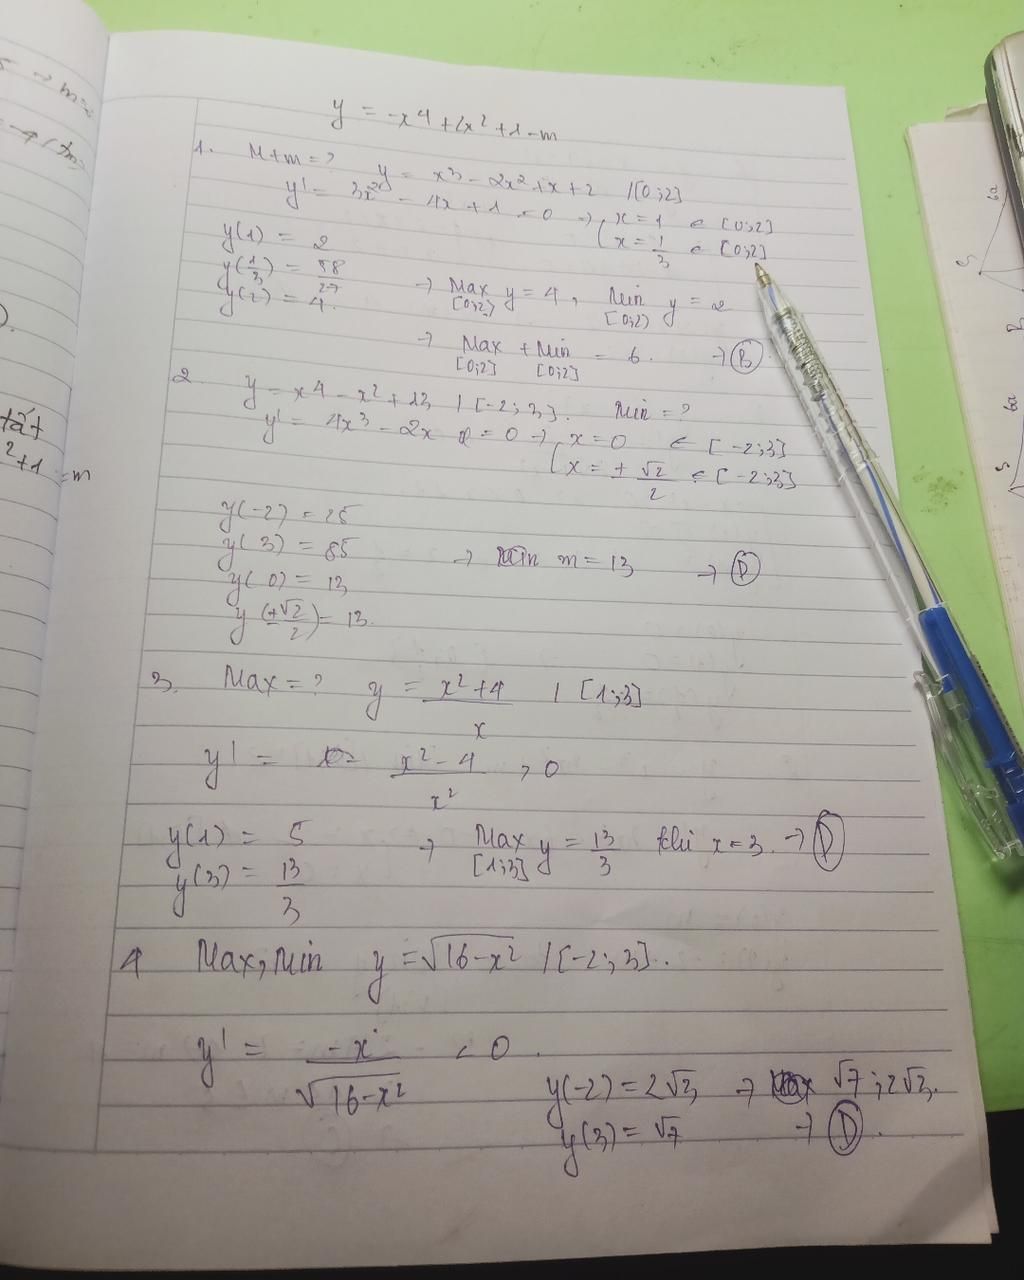 y = -x⁴ + 2x² + 1 - m
1. M+m = ? y = x³ - 2x² + x + 2 / [0;2]
y' = 3x² - 4x + 1 = 0 → [ x = 1 ∈ [0;2]
x = 1/3 ∈ [0;2]
y(1) = 2
y(1/3) = 58/27
y(2) = 4. → Max y = 4, Min y = 2
[0;2] [0;2]
→ Max + Min = 6. → B
[0;2] [0;2]
2. y = x⁴ - x² + 13 / [-2;3]. Min = ?
y' = 4x³ - 2x = 0 → [ x = 0 ∈ [-2;3]
x = ± √2/2 ∈ [-2;3]
y(-2) = 25
y(3) = 85 → Min m = 13 → D
y(0) = 13
y(±√2/2) = 13.
3. Max = ? y = (x²+4)/x / [1;3]
y' = (x²-4)/x² > 0
y(1) = 5 → Max y = 13/3 khi x = 3. → D
[1;3]
y(3) = 13/3
4 Max, Min y = √(16-x²) / [-2;3].
y' = -x/√(16-x²) < 0.
y(-2) = 2√3 → Max √7; 2√3.
y(3) = √7 → D.
tất
²+1 = m